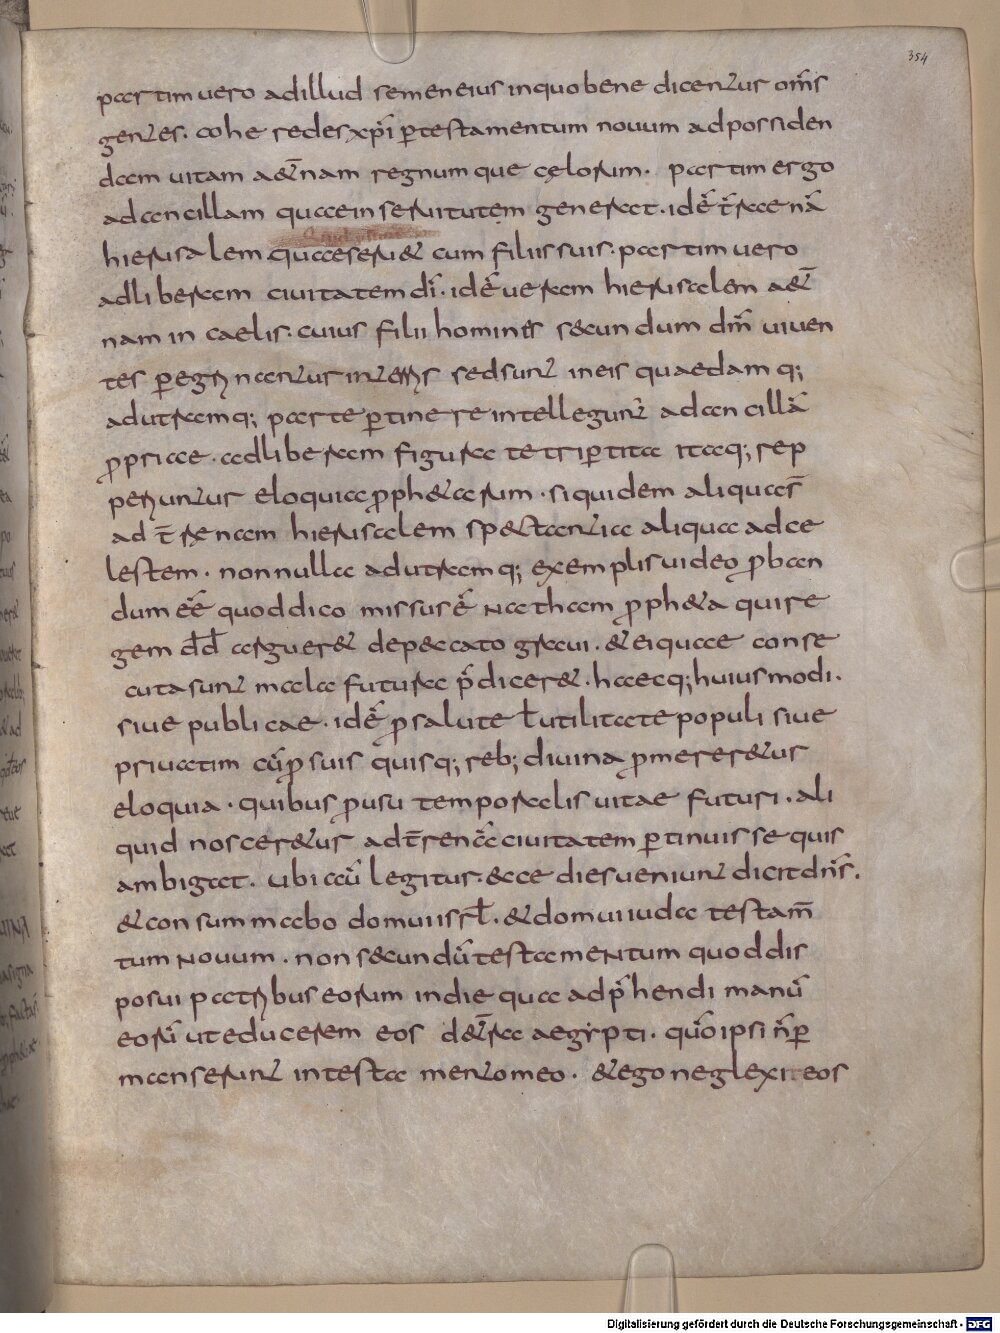 354
partim uero ad illud semen eius in quo benedicentur om̅s
gentes. cohe redes xp̅i ꝑ testamentum nouum ad possiden
dam uitam aet̅nam regnumque cęlorum. partim ergo
ad ancillam quae in seruitutem generat. id ē t̅rae nā
hierusalem quae seruit cum filiis suis. partim uero
ad liberam ciuitatem d̅i. id ē ueram hierusalem aet̅
nam in caelis. cuius filii homines secundum dm̅ uiuen
tes ꝑegrinantur in terris sed sunt in eis quaedam q;
ad utramq; parte ꝑtinere intelleguntur ad ancillā
ꝓpriae. ad liberam figurae tetriꝑtita itaq; rep
periuntur eloquia ꝓphetarum. siquidem aliqua s̅
ad t̅renam hierusalem spectantia aliqua ad ce
lestem. nonnulla ad utramq; exemplis uideo ꝓban
dum eē quod dico missus ē natham ꝓpheta qui re
gem d̅d̅ argueret de peccato graui. et ei quae conse
cuta sunt mala futura p̅diceret. haec aq; huius modi.
siue publicae. id ē ꝓ salute ł utilitate populi siue
priuatim cū ꝓ suis quisq; reb; diuina ꝓmereretur
eloquia. quibus ꝓ usu temporalis uitae futuri. ali
quid nosceretur ad t̅renā ciuitatem ꝑtinuisse quis
ambigat. ubi aū legitur. ecce dies ueniunt dicit dn̅s.
et consummabo domui isrł. et domui iuda testam̅
tum nouum. non secundū testamentum quod dis
posui patribus eorum in die qua adp̅hendi manū
eorū ut educerem eos de t̅ra aegypti. qm̅ ipsi n̅ ꝑ
manserunt in testa mento meo. et ego neglexi eos
Digitalisierung gefördert durch die Deutsche Forschungsgemeinschaft - DFG